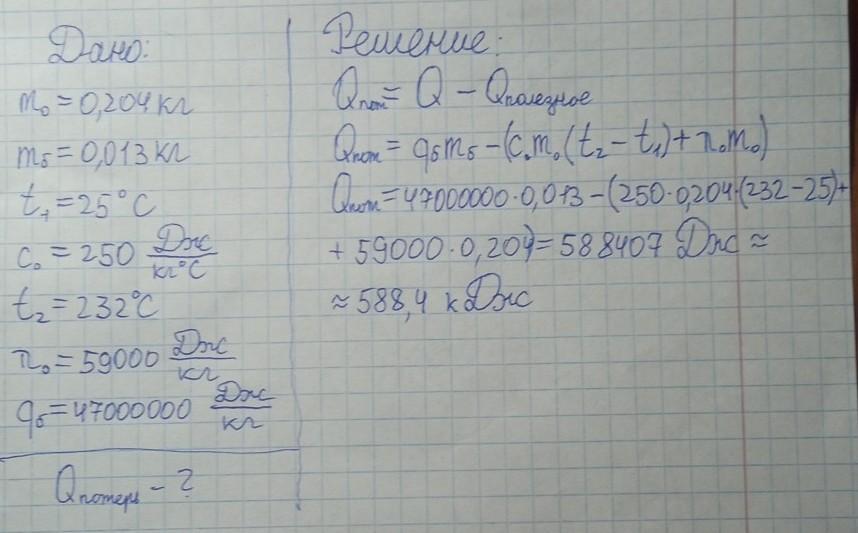 Дано:
m₀ = 0,204 кг
mб = 0,013 кг
t₁ = 25°C
c₀ = 250 Дж/кг°C
t₂ = 232°C
λ₀ = 59000 Дж/кг
qб = 47000000 Дж/кг
Qпотерь - ?
Решение:
Qпот = Q - Qполезное
Qпот = qбmб - (c₀m₀(t₂ - t₁) + λ₀m₀)
Qпот = 47000000·0,013 - (250·0,204·(232-25)+
+ 59000·0,204) = 588407 Дж ≈
≈ 588,4 кДж